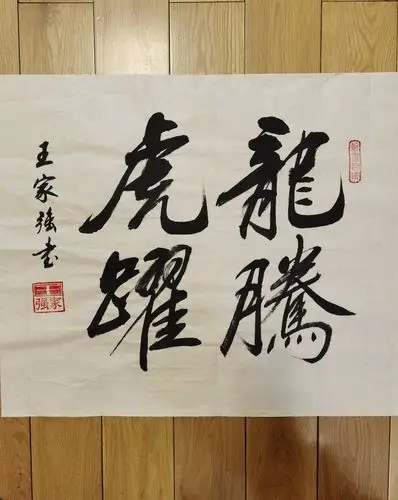 龍騰
虎躍
王家強書
王家强